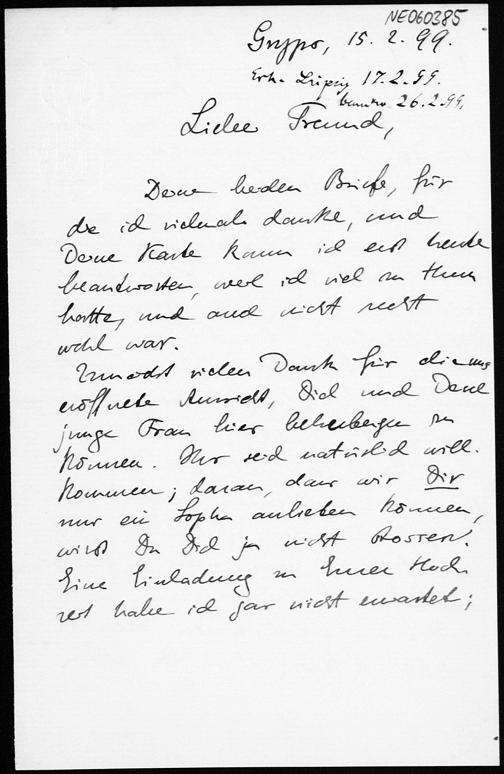 NE060385
Grypo, 15. 2. 99.
Erh. Leipzig 17.2.99.
beantw. 26.2.99.
Lieber Freund,
Deine beiden Briefe, für
die ich vielmals danke, und
Deine Karte kann ich erst heute
beantworten, weil ich viel zu thun
hatte, und auch nicht recht
wohl war.
Zunächst vielen Dank für die uns
eröffnete Aussicht, Dich und Deine
junge Frau hier beherbergen zu
können. Ihr seid natürlich will-
kommen; daran, dass wir Dir
nur ein Sopha anbieten können,
wirst Du Dich ja nicht stossen.
Eine Einladung zu Eurer Hoch
zeit habe ich gar nicht erwartet;